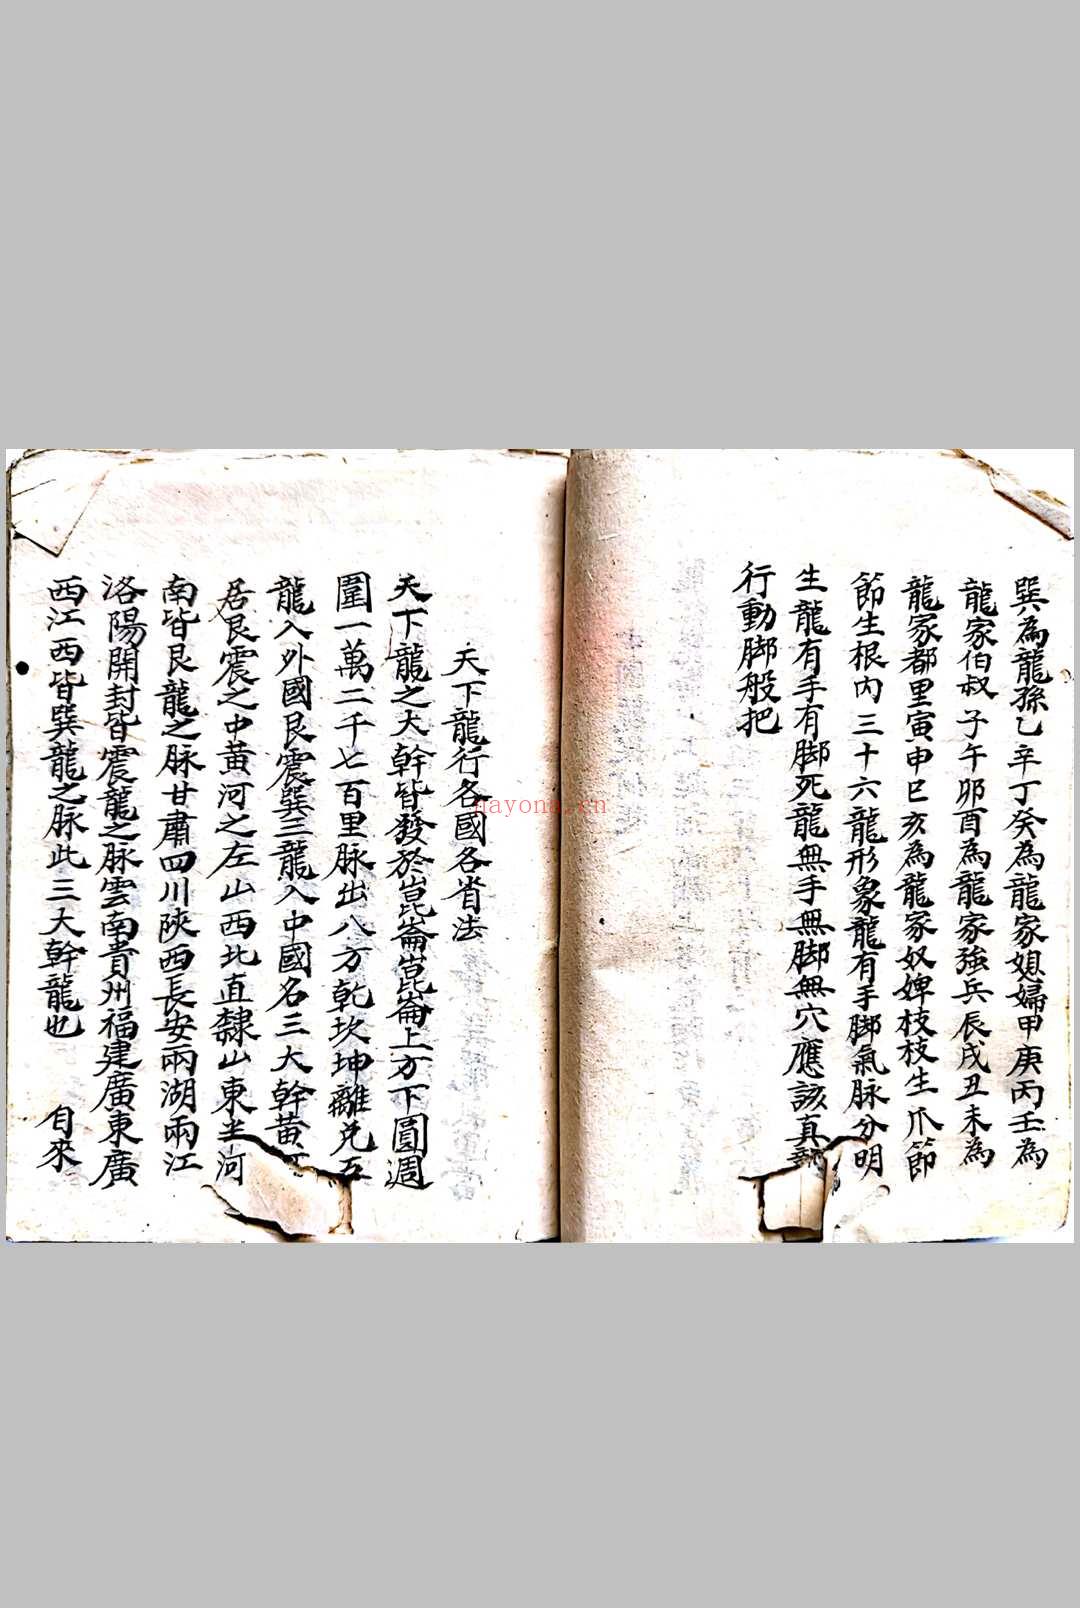 巽為龍孫乙辛丁癸為龍家媳婦甲庚丙壬為
龍家伯叔子午卯酉為龍家強兵辰戌丑未為
龍家都里寅申巳亥為龍家奴婢枝枝生爪節
節生根內三十六龍形象龍有手脚氣脉分明
生龍有手有脚死龍無手無脚無穴應該真龍
行動脚般把
天下龍行各國各省法
天下龍之大幹皆發於崑崙崑崙上方下圓週
圍一萬二千七百里脉出八方乾坎坤離兌五
龍入外國艮震巽三龍入中國名三大幹黃
居艮震之中黃河之左山西北直隸山東半河
南皆艮龍之脉甘肅四川陝西長安兩湖兩江
洛陽開封皆震龍之脉雲南貴州福建廣東廣
西江西皆巽龍之脉此三大幹龍也 自來
nayona.cn